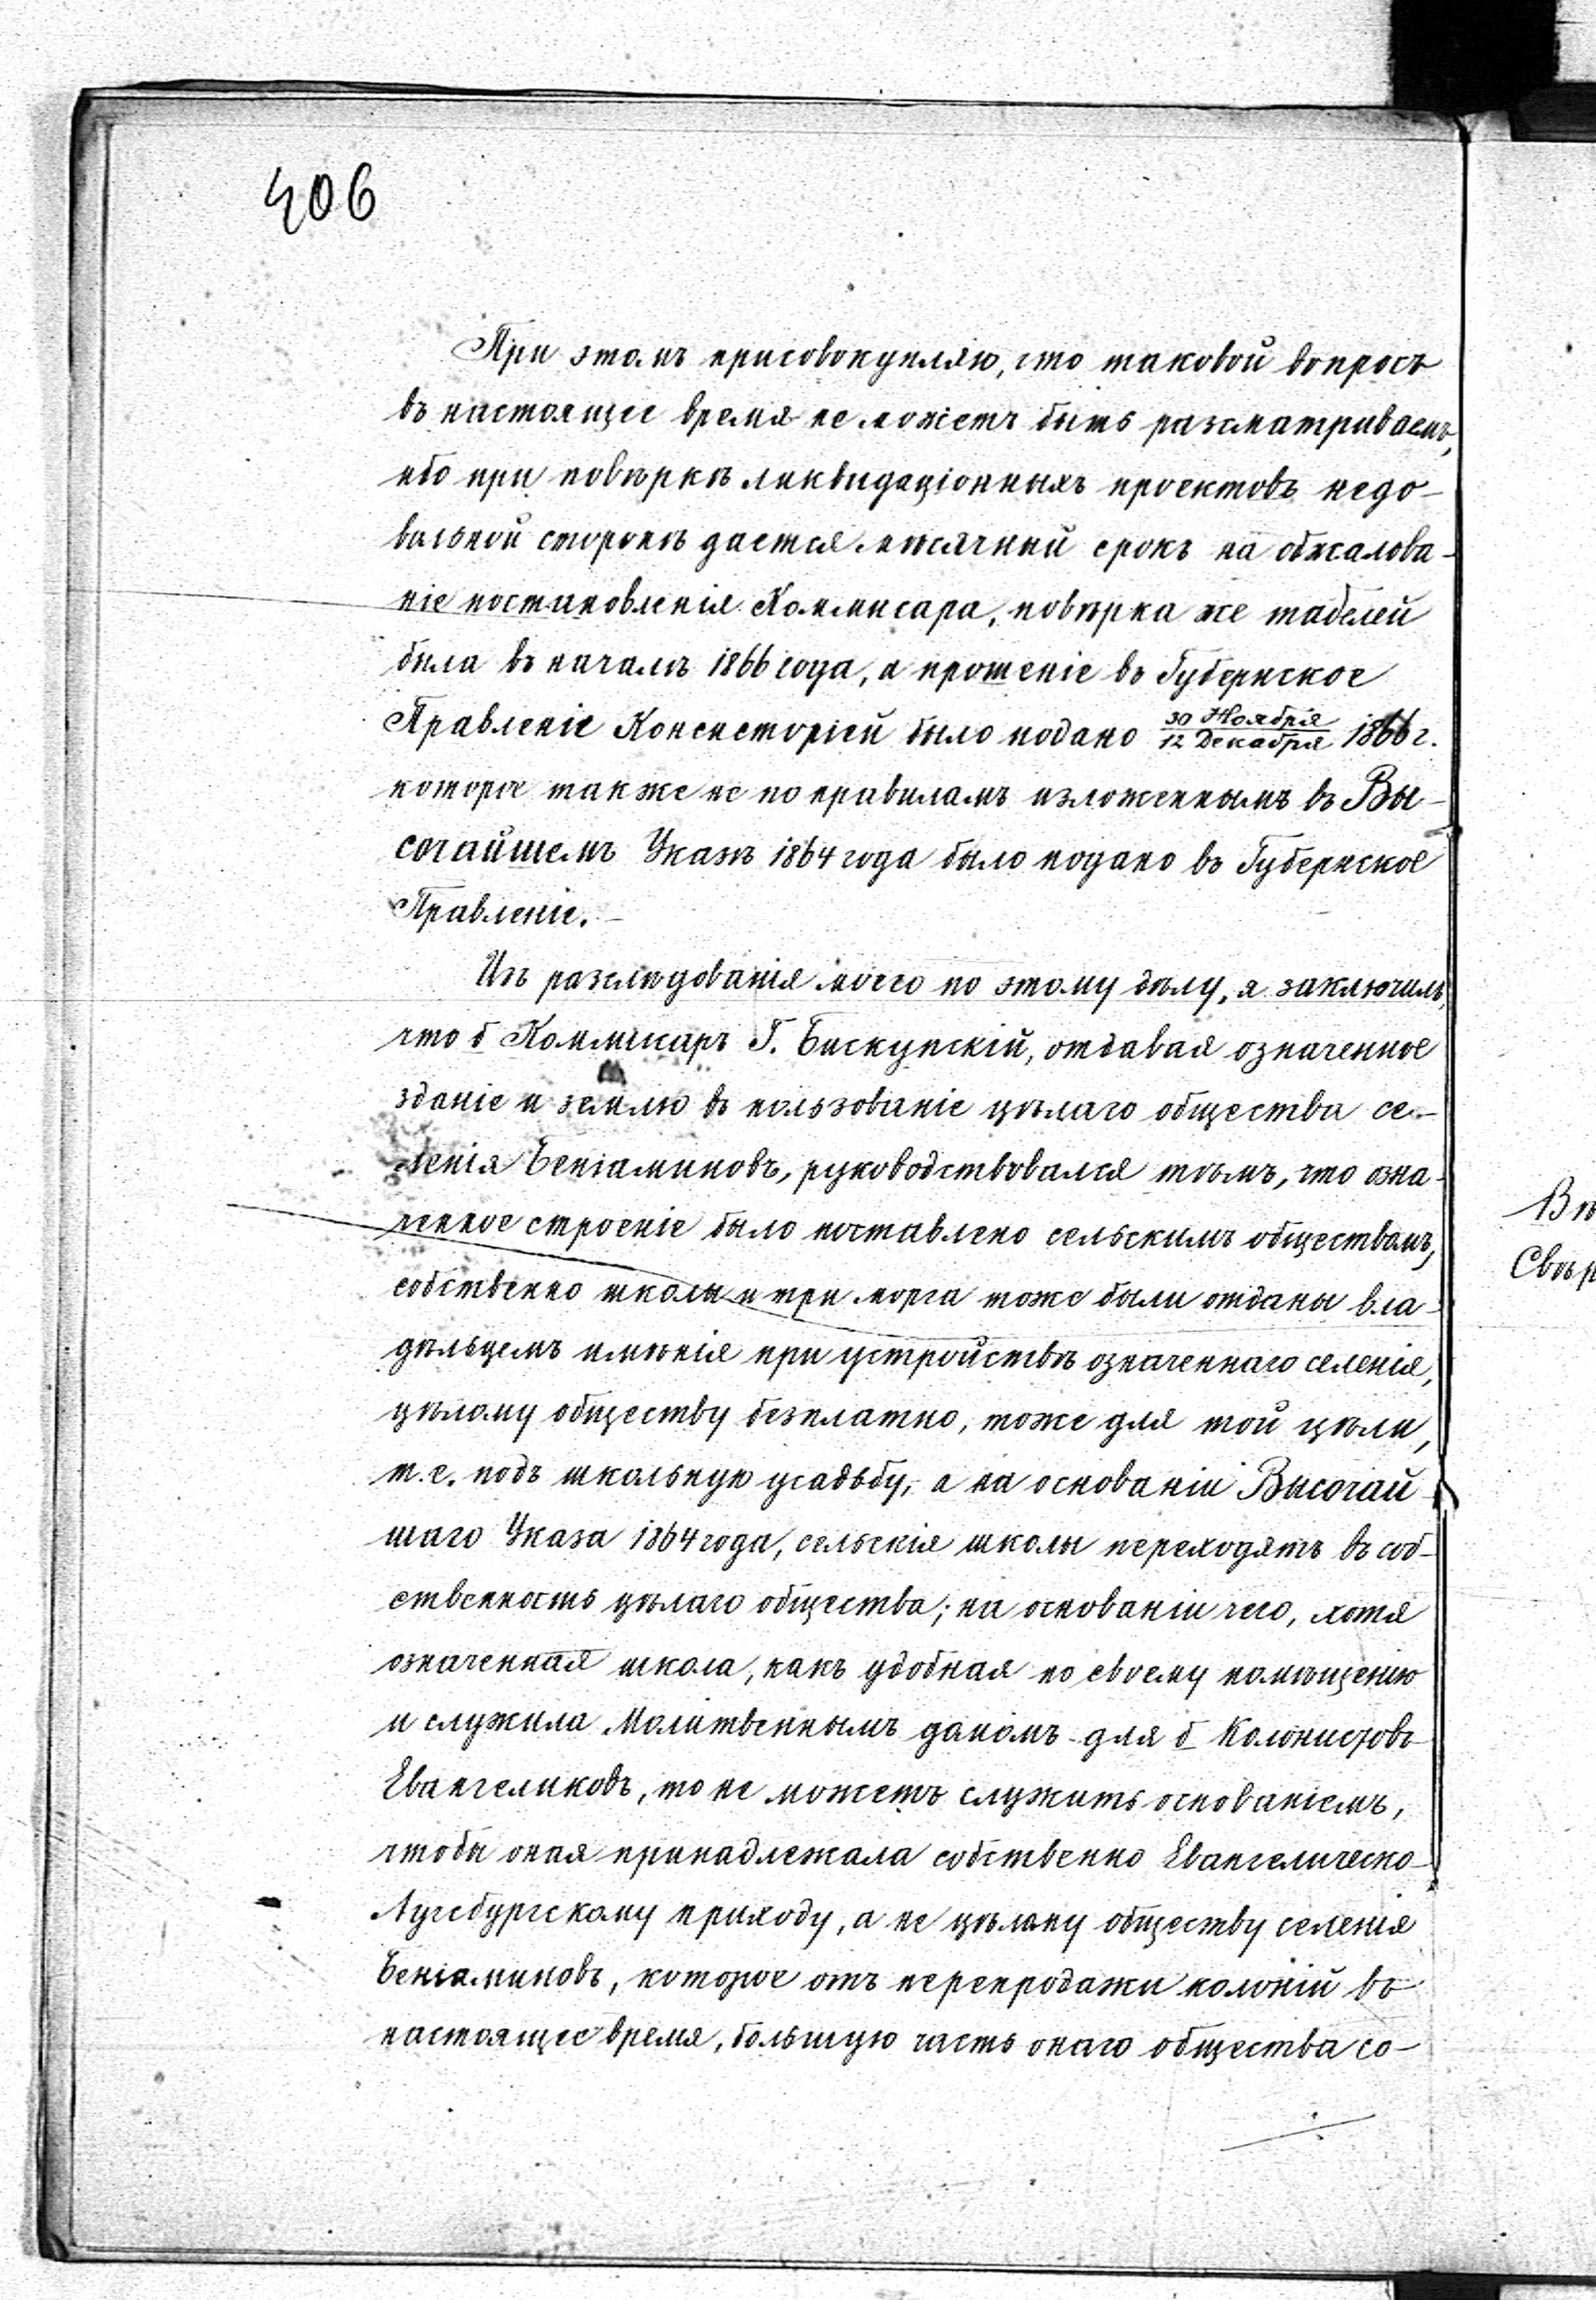 406
При этомъ присовокупляю, что таковой вопросъ
въ настоящее время не можетъ быть разсматриваемъ,
ибо при повѣркѣ ликвидаціонныхъ проектовъ недо-
вольной сторонѣ дается мѣсячный срокъ на обжалова-
ніе постановленія Коммисара, повѣрка же табелей
была въ началѣ 1866 года, а прошеніе въ Губернское
Правленіе Консисторіей было подано 30 Ноября / 12 Декабря 1866 г.
которое также не по правиламъ изложеннымъ въ Вы-
сочайшемъ Указѣ 1864 года было подано въ Губернское
Правленіе. –
Изъ разслѣдованія моего по этому дѣлу, я заключилъ,
что б Коммисаръ Г. Бискупскій, отдавая означенное
зданіе и землю въ пользованіе цѣлаго общества се-
ленія Беніаминовъ, руководствовался тѣмъ, что озна-
ченное строеніе было поставлено сельскимъ обществамъ,
собственно школы и три морга тоже были отданы вла-
дѣльцемъ имѣнія при устройствѣ означеннаго селенія,
цѣлому обществу безплатно, тоже для той цѣли,
т.е. подъ школьную усадьбу, а на основаніи Высочай-
шаго Указа 1864 года, сельскія школы переходятъ въ соб-
ственность цѣлаго общества; на основаніи чего, хотя
означенная школа, какъ удобная по своему помѣщенію
и служила Молитвеннымъ домомъ для б Колонистовъ
Евангеликовъ, то не можетъ служить основаніемъ,
чтобы оная принадлежала собственно Евангелическо-
Аугсбургскому приходу, а не цѣлому обществу селенія
Беніаминовъ, которое отъ перепродажи колоній въ
настоящее время, большую часть онаго общества со-
Вѣ
Свѣр